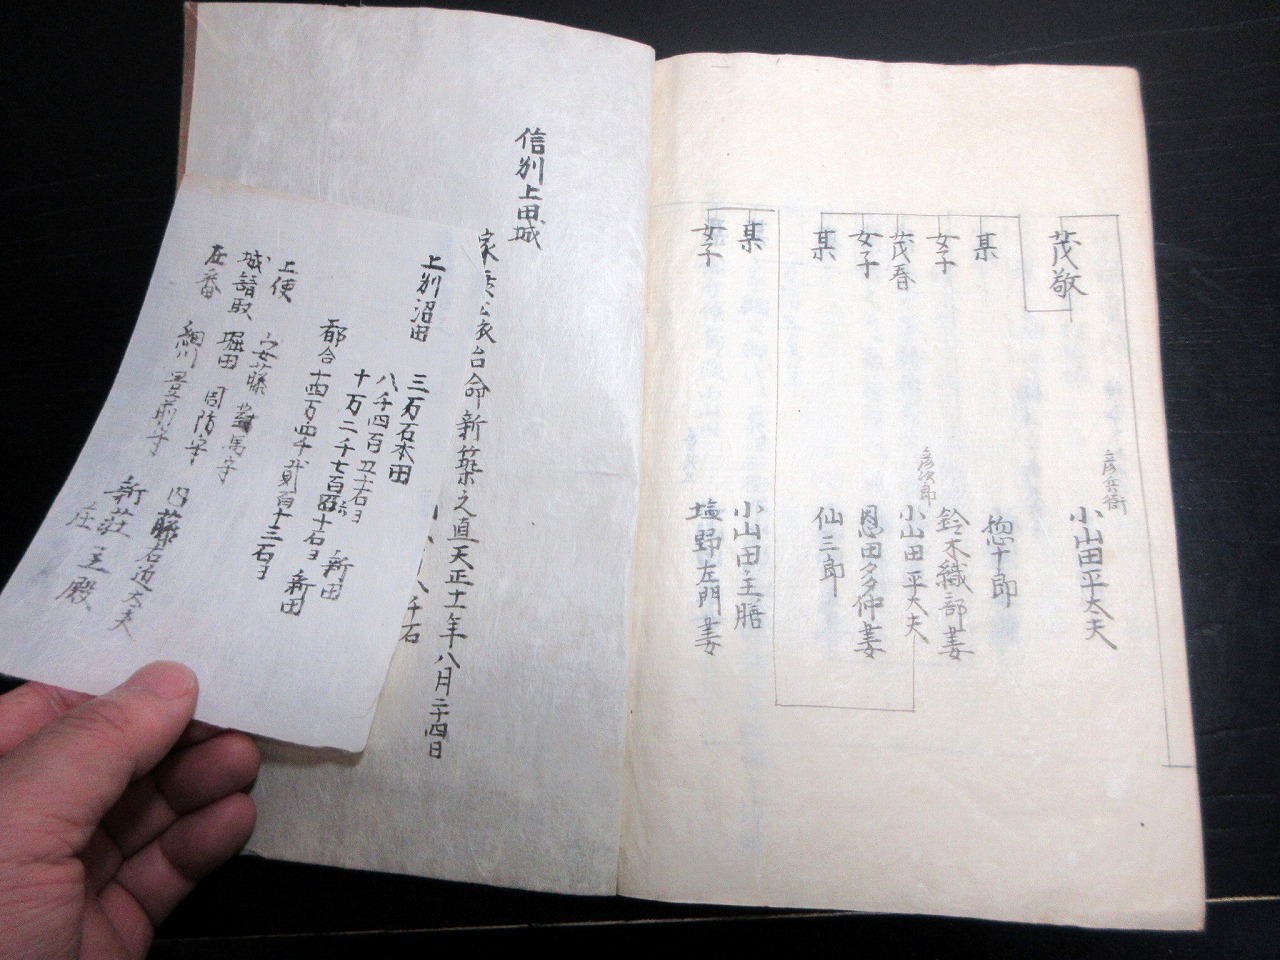 茂敬
彦兵衛
小山田平太夫
某
惣十郎
女子
鈴木織部妻
茂春
彦次郎
小山田平太夫
女子
恩田多仲妻
某
仙三郎
某
小山田主膳
女子
塩野左門妻
信州上田城
台命新築之直天正十一年八月二十四日
上州沼田
三万石本田
八千四百五十石ヨ
新田
都合十四万四千貳百十三石ヨ
新田
上使
安藤對馬守
城請取
堀田周防守
内藤右近太夫
在番
細川豊前守
新荘主殿
八千石